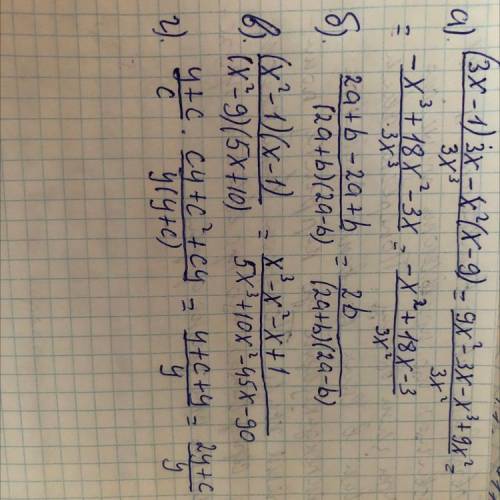 а). ((3x-1)3x-x²(x-9))/(3x³) = (9x²-3x-x³+9x²)/(3x²) =
= (-x³+18x²-3x)/(3x³) = (-x²+18x-3)/(3x²)
б). (2a+b-2a+b)/((2a+b)(2a-b)) = 2b/((2a+b)(2a-b))
в). ((x²-1)(x-1))/((x²-9)(5x+10)) = (x³-x²-x+1)/(5x³+10x²-45x-90)
г). (y+c)/c · (cy+c²+cy)/(y(y+c)) = (y+c+y)/y = (2y+c)/y